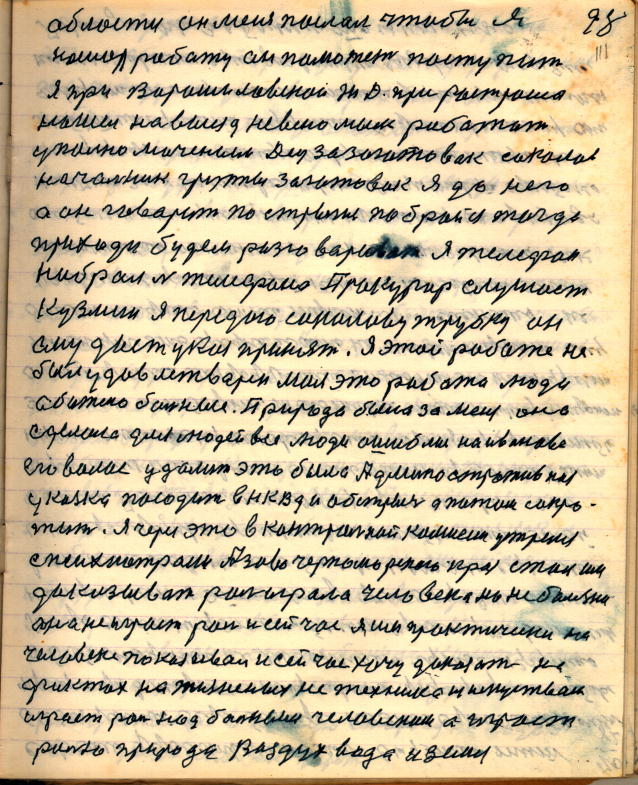 области он меня послал чтобы я 98
нашол работу он поможет поступит
я при Ворошиловской Ж.Д. при
нашел на выезд работат
уполномоченым заготовок соколов
началник групы заготовок я до него
а он говарит по стрыги по бройся тогда
приходи будем разговариват я телефон
набрал № телефона Прокурор слушает
Кузмин я передою соколову трубку он
ему дает указ принят. Я этой работе не
был удовлетварен моя это работа люди
а батено болные. Природа была за меня она
сделала для людей все люди ошибли на иванове
его волос удалит это была Административная
указка посодит в НКВД и обстрич а потом сокро-
тит. Я чери это в контролной комисеи утрени
с психиатрами Азово черноморского края стал им
доказыват роль играла человека но не болезни
она не играет рол и сейчас. я им практически на
человеке показывал и сейчас хочу доказат на
фактох на жизненых не техника и искуства
играет рол над болным человеком а играет
ролю природа Воздух вода и земля